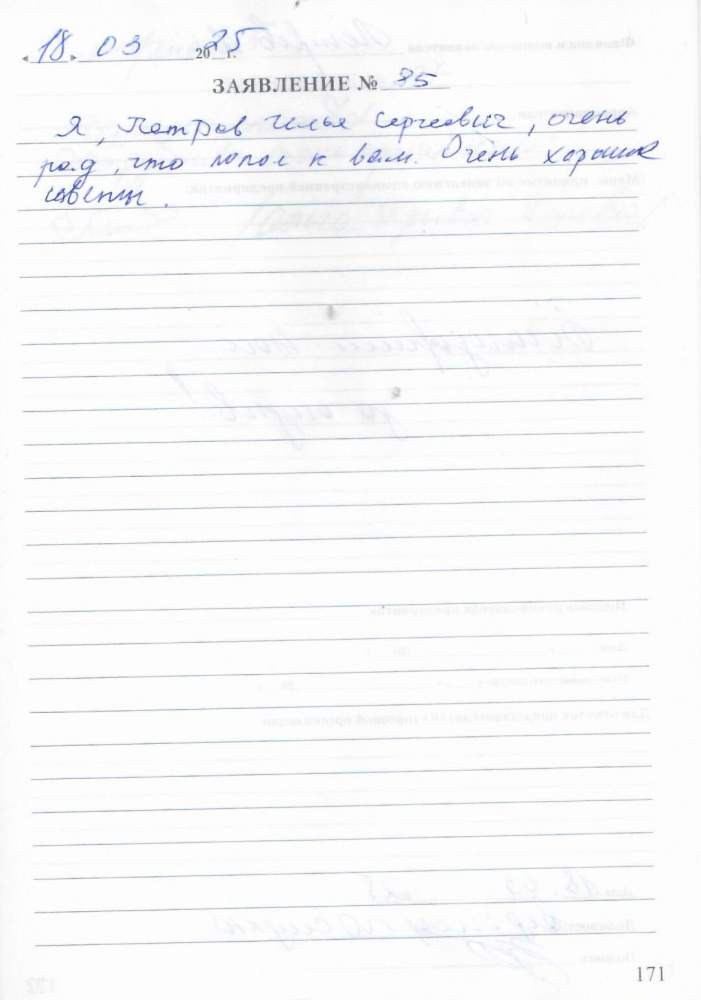 « 18 » 03 2025 г.
ЗАЯВЛЕНИЕ № 85
Я, Петров Илья Сергеевич, очень
рад, что попал к вам. Очень хорошие
советы.
171